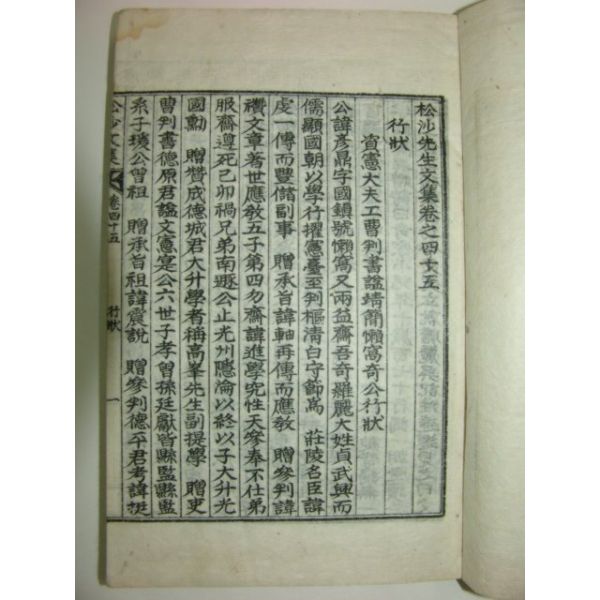 松沙先生文集卷之四十五
行狀
資憲大夫工曹判書諡靖簡懶窩奇公行狀
公諱彦鼎字國鎭號懶窩又兩益齋吾奇羅麗大姓貞武興而
儒顯國朝以學行擢憲臺至判樞清白守節爲 莊陵名臣諱
虔一傳而豐儲副事 贈承旨諱軸再傳而應敎 贈參判諱
禶文章著世應敎五子第四勿齋諱進學究性天參奉不仕弟
服齋遵死己卯禍兄弟南遯公止光州隱淪以終以子大升光
國勳 贈贊成德城君大升學者稱高峯先生副提學 贈吏
曹判書德原君諡文憲寔公六世子孝曾孫廷獻皆縣監縣監
系子璞公曾祖 贈承旨祖諱震說 贈參判德平君考諱挺
松沙文集 卷四十五 行狀 一